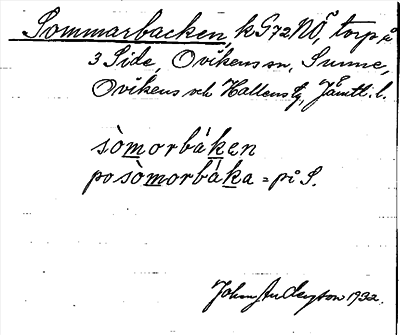 Sommarbacken, k G72NÖ, torp i
3 Side, Ovikens sn, Sunne,
Ovikens och Hallens tg, Jämtl. l.
sòmorbáken
po sòmorbáka = på S.
1932